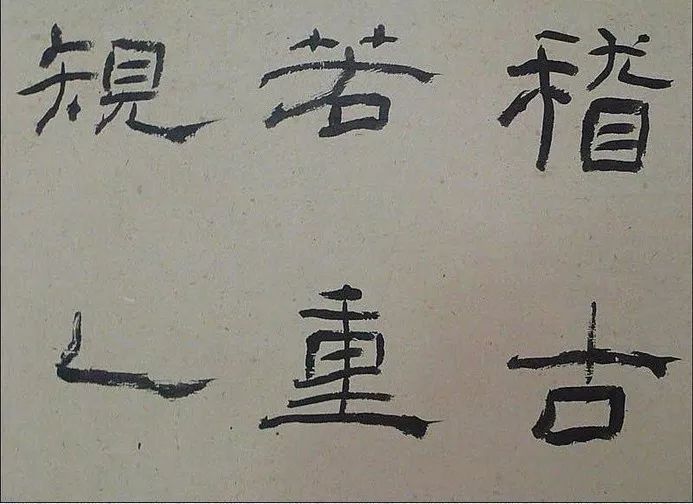 稽古
若重
規